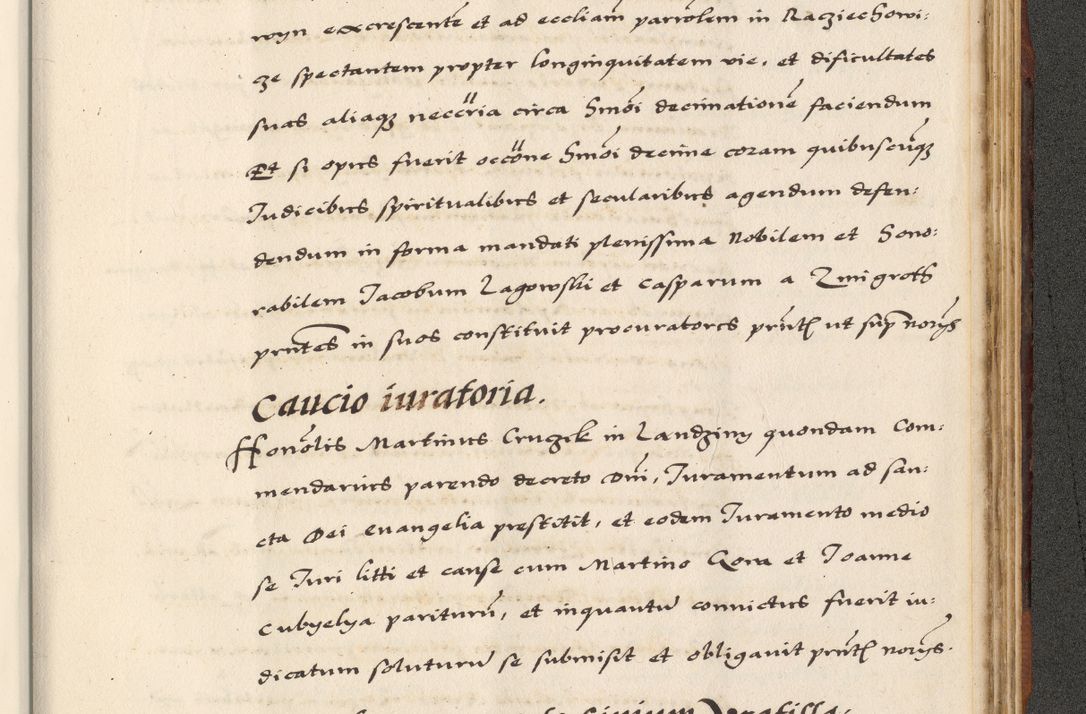 wyn excrescente et ad eccliam parrolem in Racziechowi:
ze spectantem propter longinquitatem vie, et dificultates
suas aliaqz neccria circa hmoi decimatione faciendum
Et si opus fuerit occone hmoi decime coram quibuscuqz
Iudicibus spiritualibus et secularibus agendum defen:
dendum in forma mandati plenissima Nobilem et hono:
rabilem Iacobum Lagowski et Casparum a Zmigroth
prntes in suos constituit procuratores prnt ut sup norys
Caucio iuratoria.
Honolis Martinus Cruzik in Landziny quondam Com:
mendarius parendo decreto Dni, Iuramentum ad san:
cta Dei evangelia prestitit, et eodem Iuramento medio
se Iuri litti et cause cum Martino Gora et Ioanne
Cubyelya pariturum, et inquantu convictus fuerit iu:
dicatum soluturu se submisit et obligavit prnt norys.